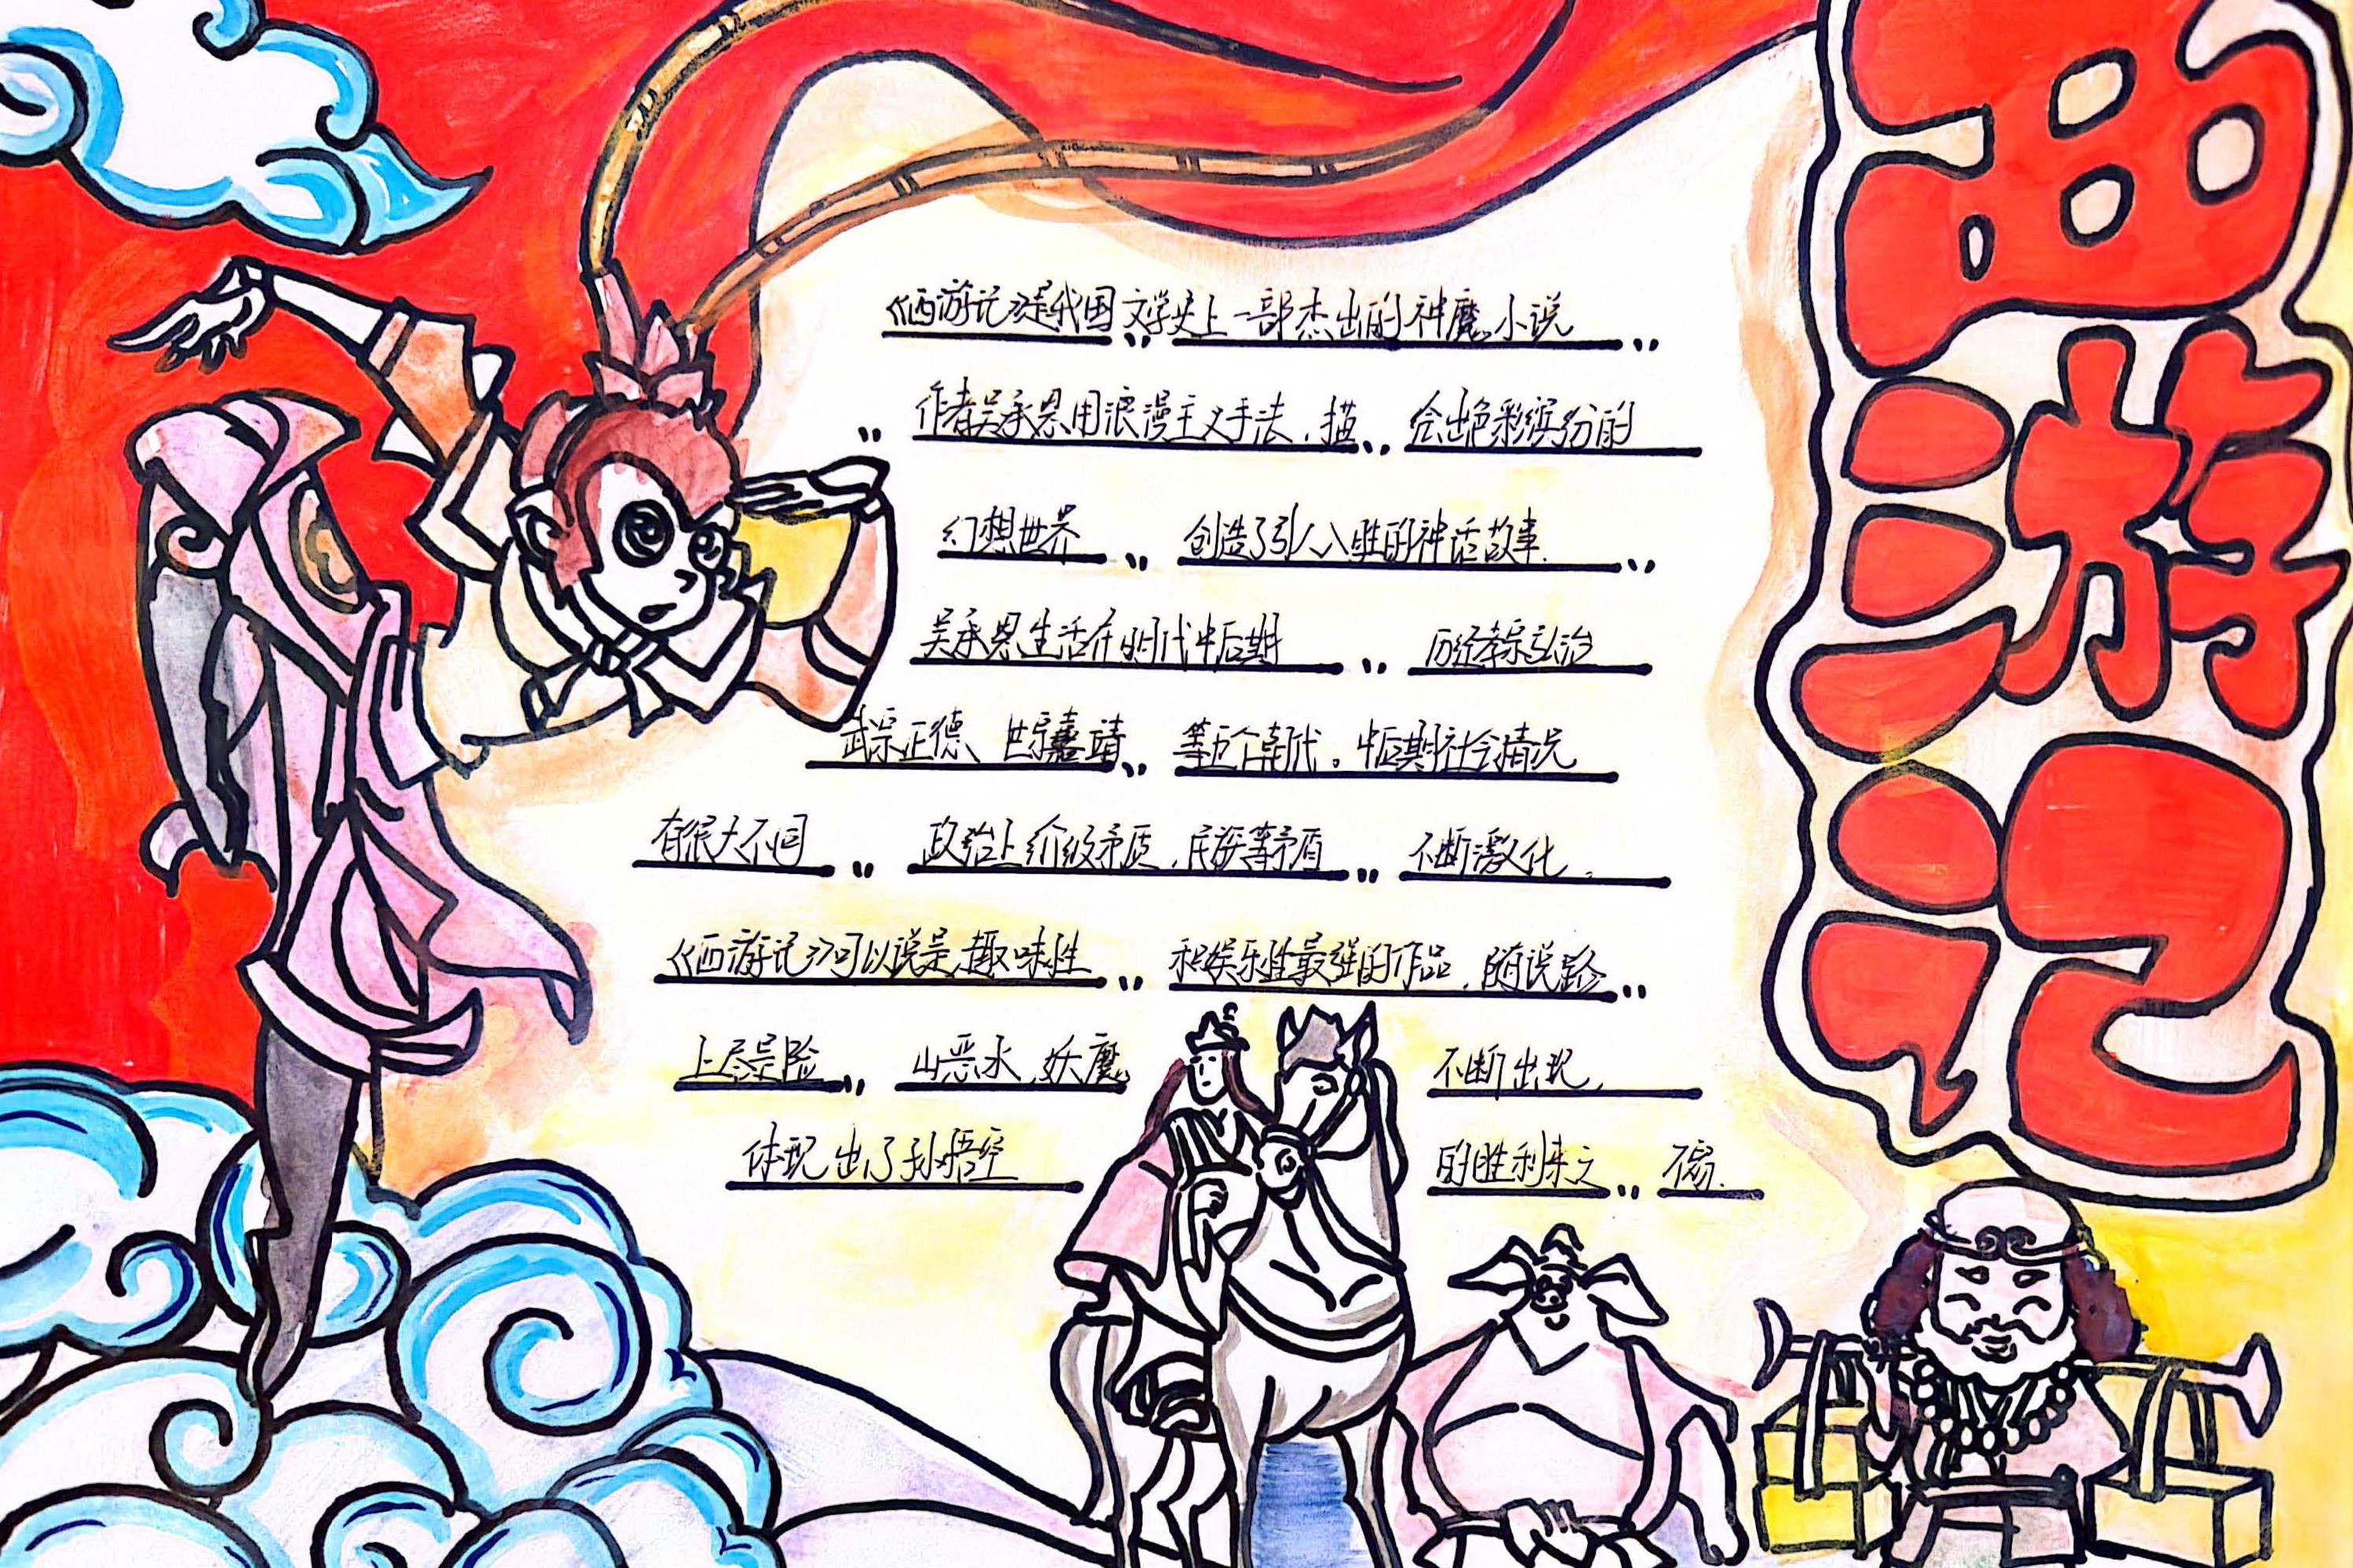 西游记
《西游记》是我国文学史上一部杰出的神魔小说
作者吴承恩用浪漫主义手法，描绘出色彩缤纷的
幻想世界 创造了引人入胜的神话故事.
吴承恩生活在明代中后期 历经孝宗弘治
武宗正德、世宗嘉靖 等五个朝代。中后期社会情况
有很大不同 政治上阶级矛盾，民族等矛盾 不断激化，
《西游记》可以说是趣味性 和娱乐性最强的作品，随说路
上尽是险 山恶水，妖魔 不断出现，
体现出了孙悟空 的胜利来之 不易.